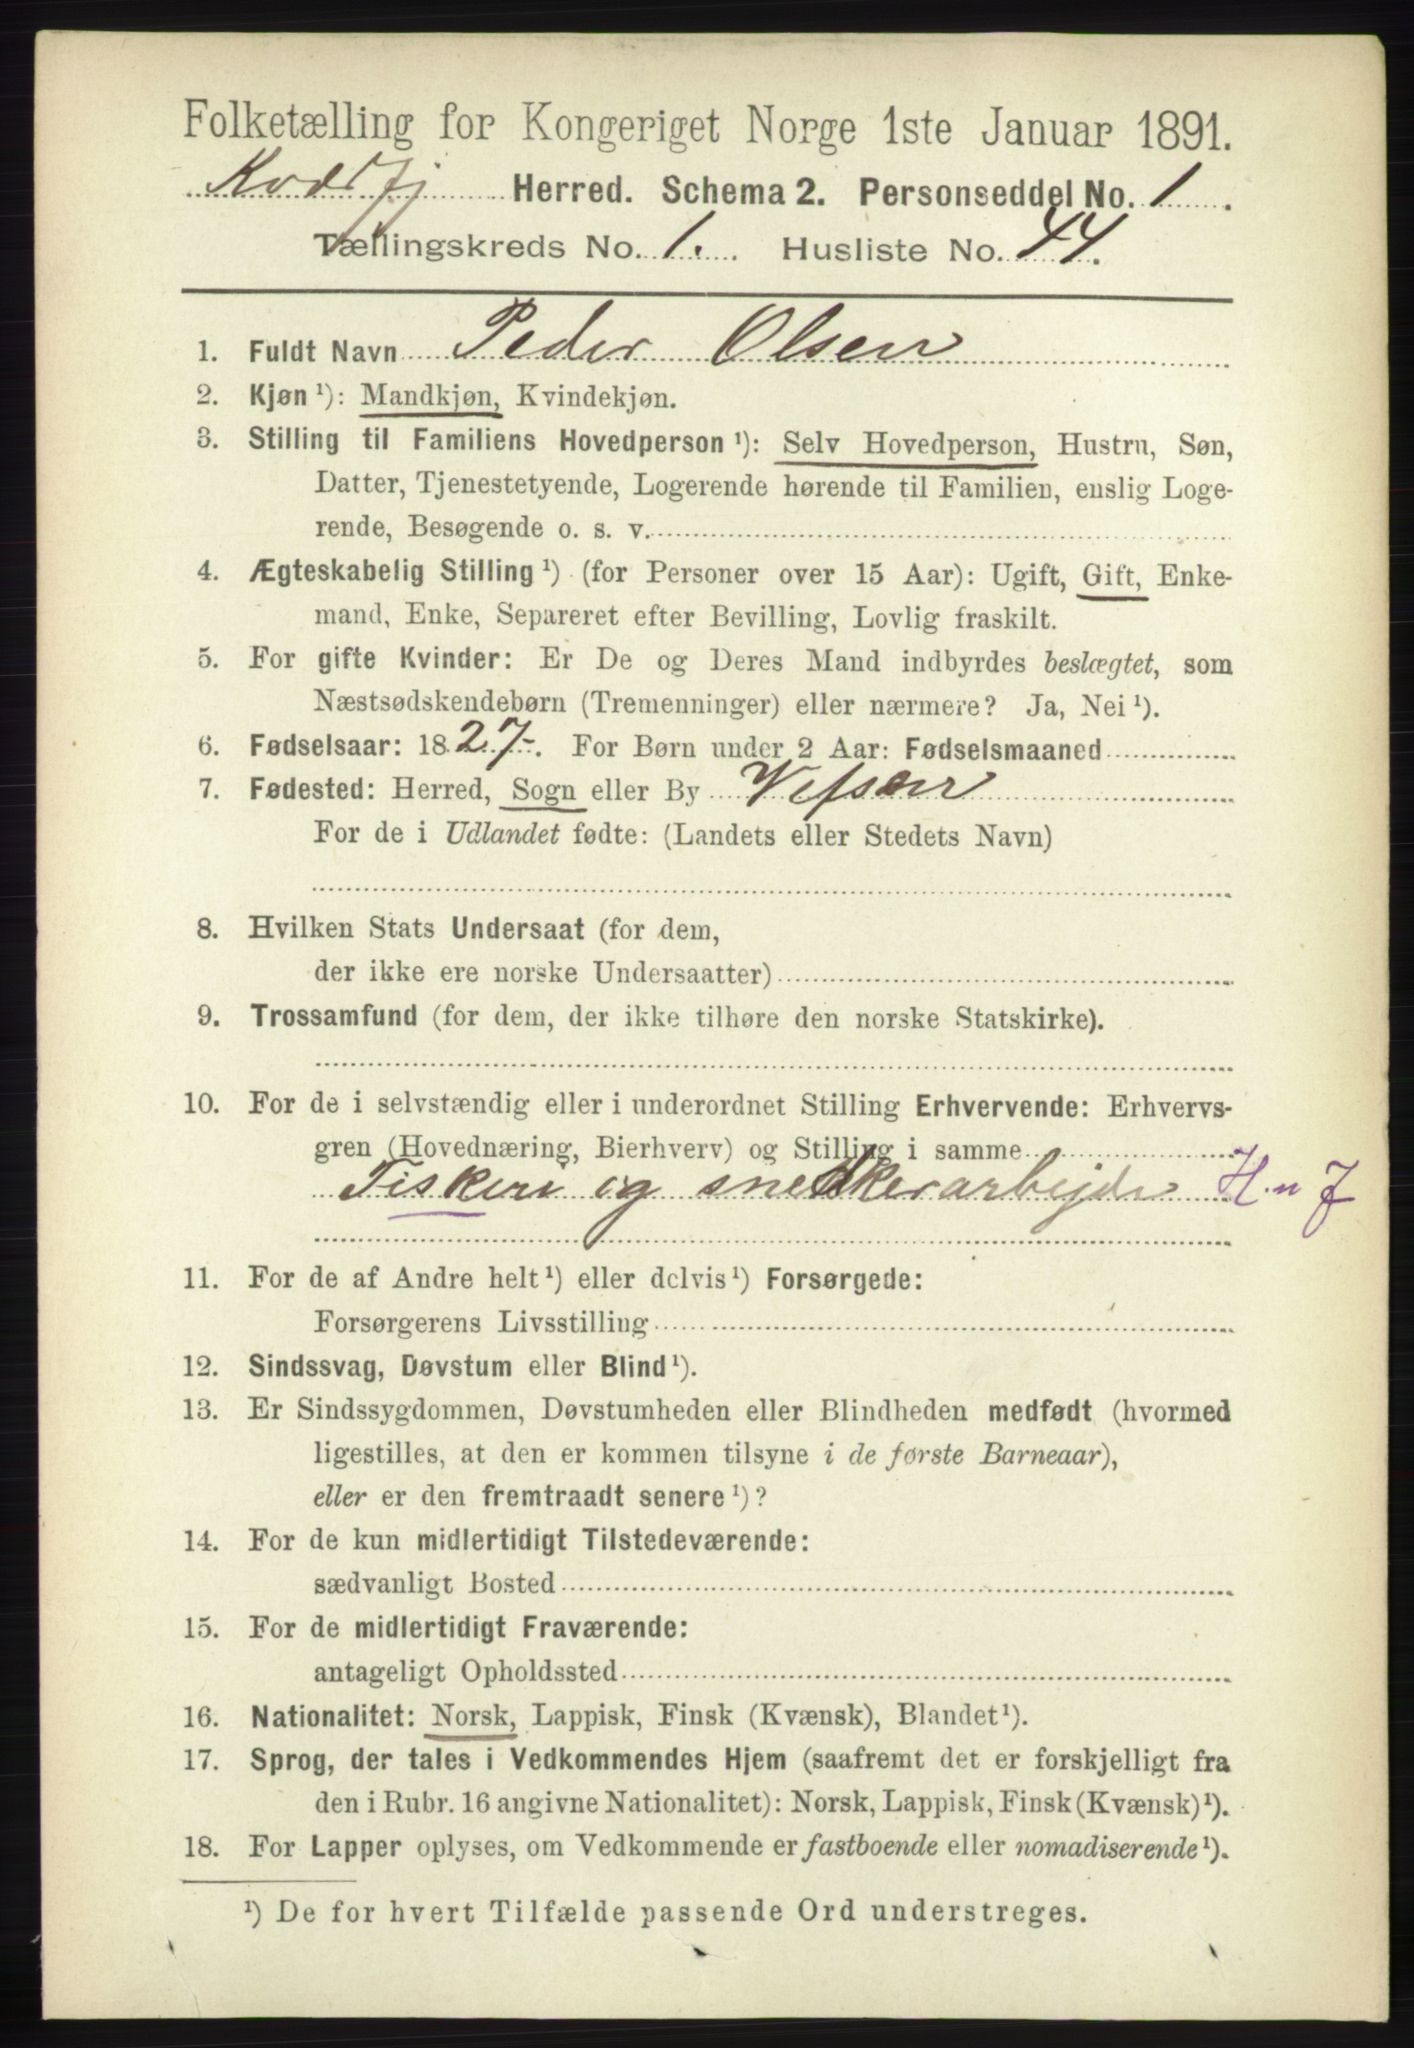 Folketælling for Kongeriget Norge 1ste Januar 1891.
Kvæfj Herred. Schema 2. Personseddel No. 1.
Tællingskreds No. 1. Husliste No. 44.
1. Fuldt Navn Peder Olsen
2. Kjøn ¹): Mandkjøn, Kvindekjøn.
3. Stilling til Familiens Hovedperson ¹): Selv Hovedperson, Hustru, Søn,
Datter, Tjenestetyende, Logerende hørende til Familien, enslig Loge-
rende, Besøgende o. s. v.
4. Ægteskabelig Stilling ¹) (for Personer over 15 Aar): Ugift, Gift, Enke-
mand, Enke, Separeret efter Bevilling, Lovlig fraskilt.
5. For gifte Kvinder: Er De og Deres Mand indbyrdes beslægtet, som
Næstsødskendebørn (Tremenninger) eller nærmere? Ja, Nei ¹).
6. Fødselsaar: 1827. For Børn under 2 Aar: Fødselsmaaned
7. Fødested: Herred, Sogn eller By Vefsen
For de i Udlandet fødte: (Landets eller Stedets Navn)
8. Hvilken Stats Undersaat (for dem,
der ikke ere norske Undersaatter)
9. Trossamfund (for dem, der ikke tilhøre den norske Statskirke).
10. For de i selvstændig eller i underordnet Stilling Erhvervende: Erhvervs-
gren (Hovednæring, Bierhverv) og Stilling i samme
Fiskeri og snedkerarbejde H.n F
11. For de af Andre helt ¹) eller delvis ¹) Forsørgede:
Forsørgerens Livsstilling
12. Sindssvag, Døvstum eller Blind ¹).
13. Er Sindssygdommen, Døvstumheden eller Blindheden medfødt (hvormed
ligestilles, at den er kommen tilsyne i de første Barneaar),
eller er den fremtraadt senere ¹)?
14. For de kun midlertidigt Tilstedeværende:
sædvanligt Bosted
15. For de midlertidigt Fraværende:
antageligt Opholdssted
16. Nationalitet: Norsk, Lappisk, Finsk (Kvænsk), Blandet ¹).
17. Sprog, der tales i Vedkommendes Hjem (saafremt det er forskjelligt fra
den i Rubr. 16 angivne Nationalitet): Norsk, Lappisk, Finsk (Kvænsk) ¹).
18. For Lapper oplyses, om Vedkommende er fastboende eller nomadiserende ¹).
¹) De for hvert Tilfælde passende Ord understreges.